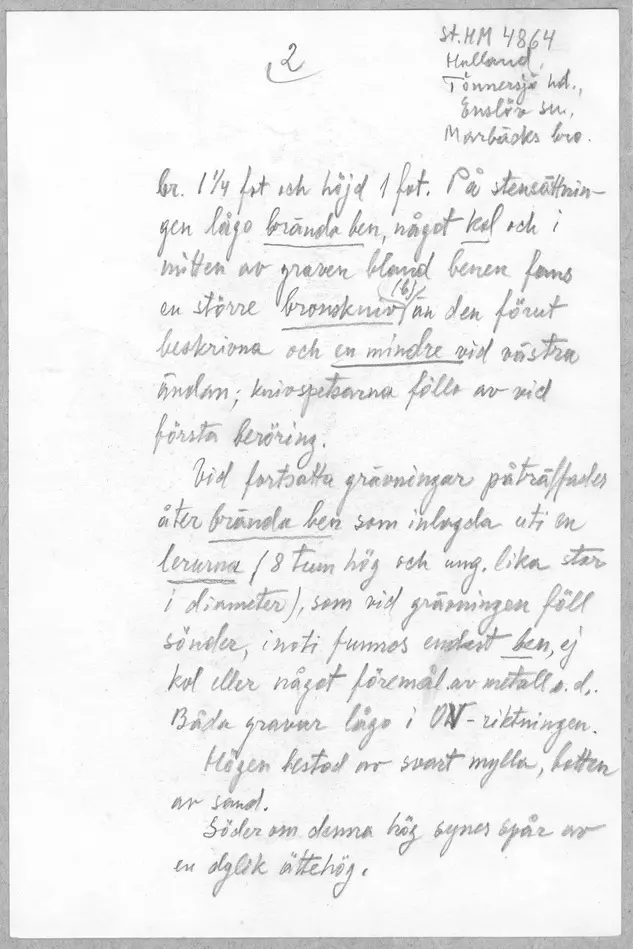 2
St.HM 4864
Halland,
Tönnersjö hd.,
Enslöv sn,
Marbäcks bro.
br. 1 1/4 fot och höjd 1 fot. På stensättnin-
gen lågo brända ben, något kol och i
mitten av graven bland benen fans
en större bronskniv (b) än den förut
beskrivna och en mindre vid västra
ändan; knivspetsarna föllo av vid
första beröring.
Vid fortsatta grävningar påträffades
åter brända ben som inlagda uti en
lerurna (8 tum hög och ung. lika stor
i diameter), som vid grävningen föll
sönder, inoti funnos endast ben, ej
kol eller något föremål av metall o.d.
Båda gravar lågo i OV-riktningen.
Högen bestod av svart mylla, botten
av sand.
Söder om denna hög synes spår av
en dylik ättehög.